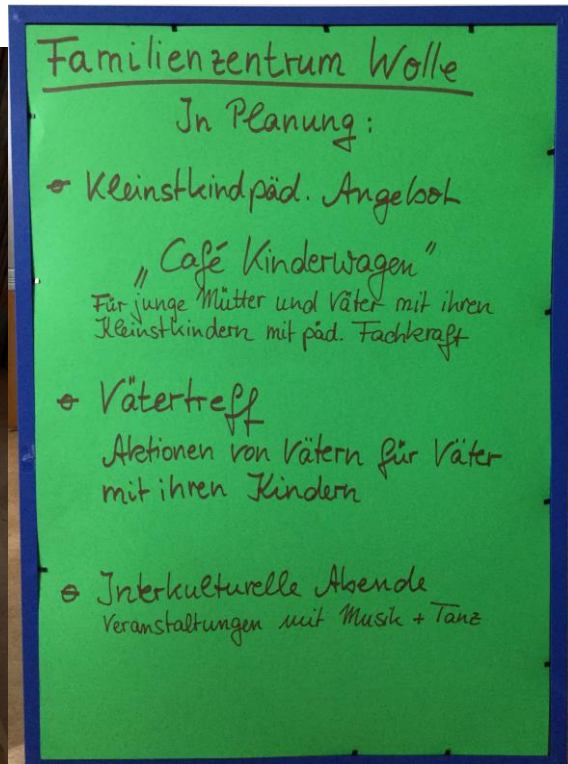 Familienzentrum Wolle
In Planung:
Kleinstkindpäd. Angebot
„Café Kinderwagen"
Für junge Mütter und Väter mit ihren
Kleinstkindern mit päd. Fachkraft
Vätertreff
Aktionen von Vätern für Väter
mit ihren Kindern
Interkulturelle Abende
Veranstaltungen mit Musik + Tanz